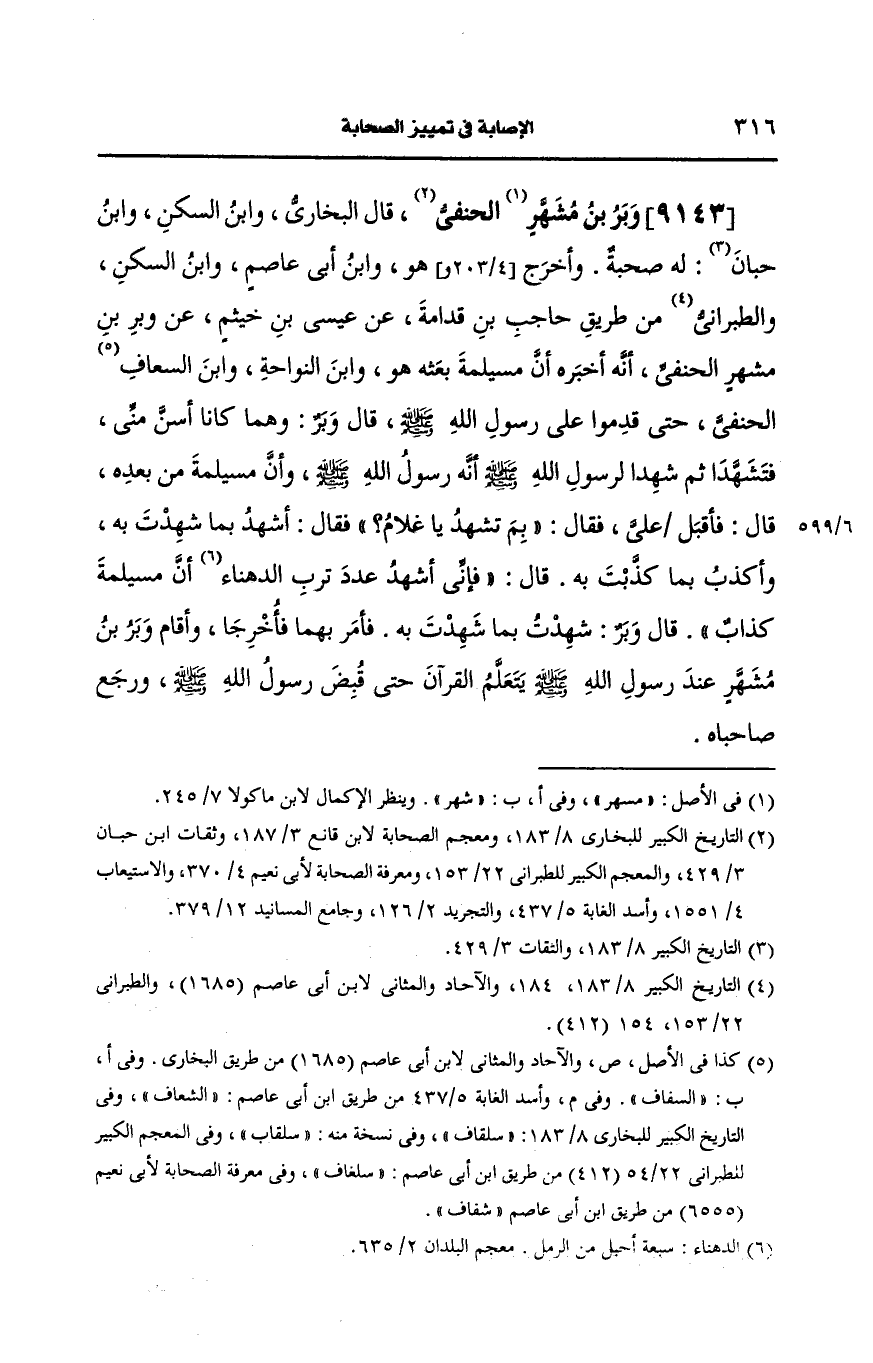 ٣١٦ الإصابة فى تمييز الصحابة
[٩١٤٣] وَبَرُ بنُ مُشَهَّرٍ(١) الحنفىُّ(٢) ، قال البخارىُّ ، وابنُ السكنِ ، وابنُ
حبانَ(٣) : له صحبةٌ . وأخرَج [٢٠٣/٤و] هو ، وابنُ أبى عاصمٍ ، وابنُ السكنِ ،
والطبرانىُّ(٤) من طريقِ حاجبِ بنِ قدامةَ ، عن عيسى بنِ خيثمٍ ، عن وبرِ بنِ
مشهرٍ الحنفىِّ ، أنَّه أخبَره أنَّ مسيلمةَ بعَثه هو ، وابنَ النواحةِ ، وابنَ السعافِ(٥)
الحنفىَّ ، حتى قدِموا على رسولِ اللهِ ﷺ ، قال وَبَرٌ : وهما كانا أسنَّ منِّى ،
فتَشَهَّدَا ثم شهِدا لرسولِ اللهِ ﷺ أنَّه رسولُ اللهِ ﷺ ، وأنَّ مسيلمةَ من بعدِه ،
قال : فأقبَل /علىَّ ، فقال : « بِمَ تشهدُ يا غلامُ؟ » فقال : أشهدُ بما شهِدْتَ به ، ٥٩٩/٦
وأكذبُ بما كذَّبْتَ به . قال : « فإنِّى أشهدُ عددَ تربِ الدهناء(٦) أنَّ مسيلمةَ
كذابٌ » . قال وَبَرٌ : شهِدْتُ بما شَهِدْتَ به . فأمَر بهما فأُخْرِجَا ، وأقام وَبَرُ بنُ
مُشَهَّرٍ عندَ رسولِ اللهِ ﷺ يَتَعَلَّمُ القرآنَ حتى قُبِضَ رسولُ اللهِ ﷺ ، ورجَع
صاحباه .
(١) فى الأصل : « مسهر » ، وفى أ ، ب : « شهر » . وينظر الإكمال لابن ماكولا ٧/ ٢٤٥.
(٢) التاريخ الكبير للبخارى ٨/ ١٨٣، ومعجم الصحابة لابن قانع ٣/ ١٨٧، وثقات ابن حبان
٣/ ٤٢٩، والمعجم الكبير للطبرانى ٢٢/ ١٥٣، ومعرفة الصحابة لأبى نعيم ٤/ ٣٧٠، والاستيعاب
٤/ ١٥٥١، وأسد الغابة ٥/ ٤٣٧، والتجريد ٢/ ١٢٦، وجامع المسانيد ١٢/ ٣٧٩.
(٣) التاريخ الكبير ٨/ ١٨٣، والثقات ٣/ ٤٢٩.
(٤) التاريخ الكبير ٨/ ١٨٣، ١٨٤، والآحاد والمثانى لابن أبى عاصم (١٦٨٥) ، والطبرانى
٢٢/ ١٥٣، ١٥٤ (٤١٢).
(٥) كذا فى الأصل ، ص ، والآحاد والمثانى لابن أبى عاصم (١٦٨٥) من طريق البخارى . وفى أ ،
ب : « السفاف » . وفى م ، وأسد الغابة ٤٣٧/٥ من طريق ابن أبى عاصم : « الشعاف » ، وفى
التاريخ الكبير للبخارى ٨/ ١٨٣: « سلقاف » ، وفى نسخة منه : « سلقاب » ، وفى المعجم الكبير
للطبرانى ٥٤/٢٢ (٤١٢) من طريق ابن أبى عاصم : « سلغاف » ، وفى معرفة الصحابة لأبى نعيم
(٦٥٥٥) من طريق ابن أبى عاصم « شغاف » .
(٦) الدهناء : سبعة أحبل من الرمل . معجم البلدان ٢/ ٦٣٥.